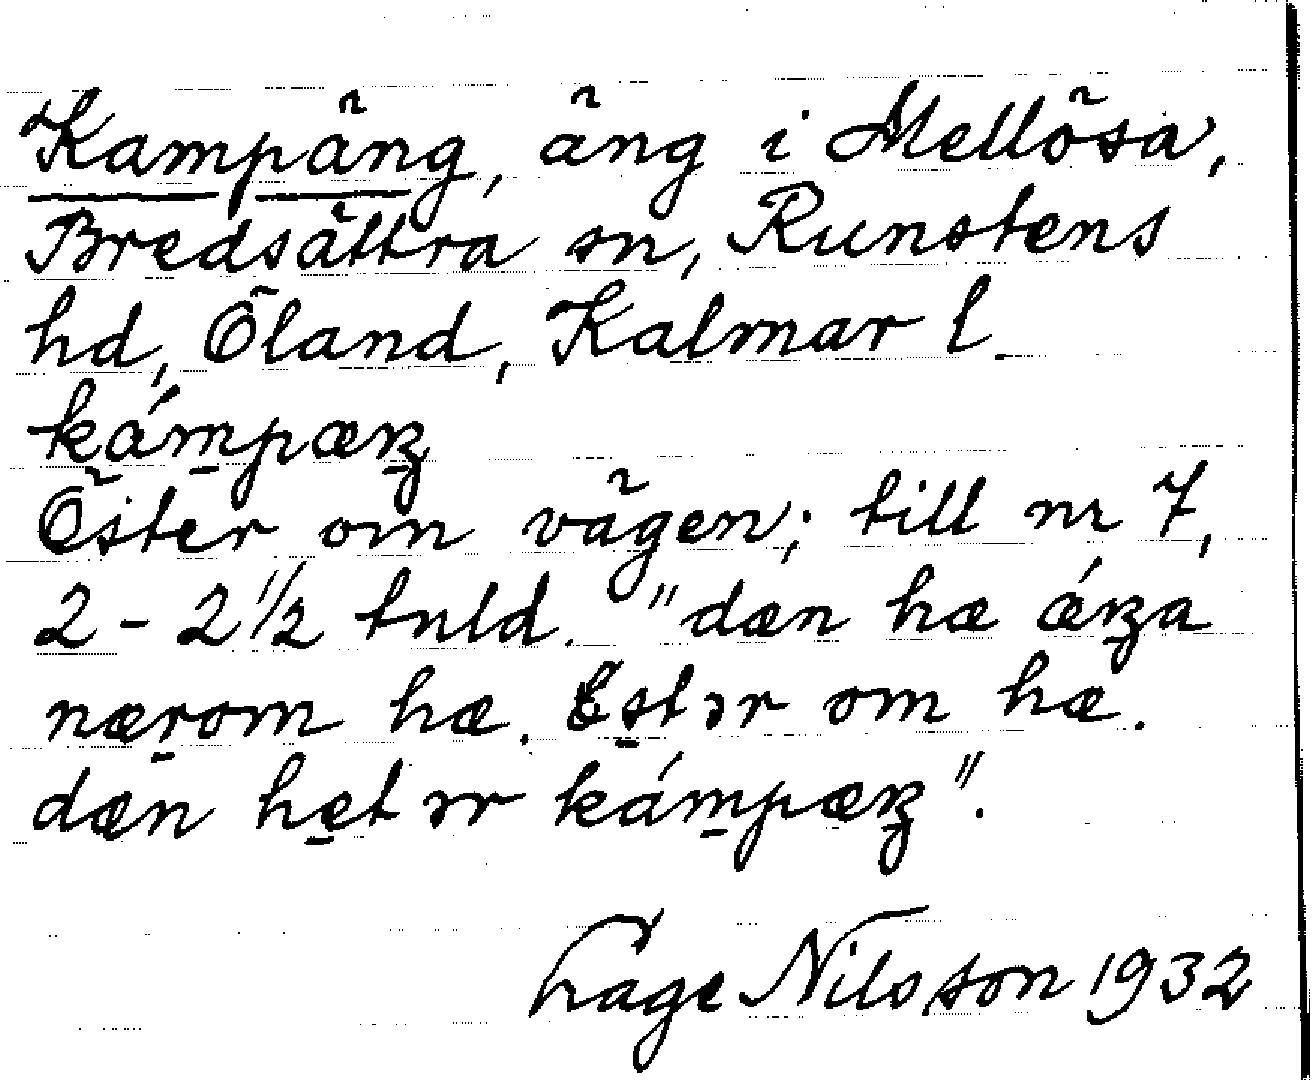 Kampäng, äng i Mellösa,
Bredsättra sn, Runstens
hd, Öland, Kalmar l.
kám̱pæŋ
Öster om vägen; till nr 7,
2 - 2 1/2 tnld. "dæn hæ ǽŋa
næṟom hæ. Es̱tər om hæ.
dæn he̱t ər kám̱pæŋ".
Tage Nilsson 1932